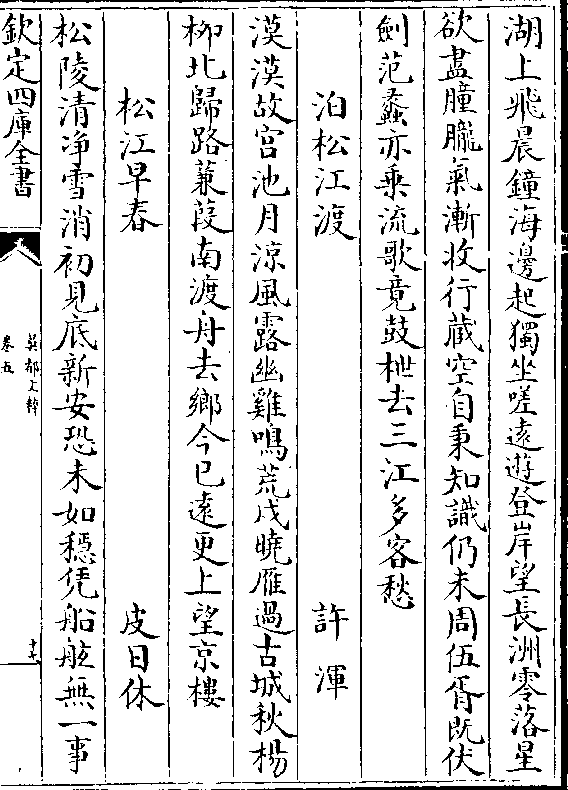 湖上飛晨鐘海邊起獨坐嗟遠遊登岸望長洲零落星
欲盡朣朧氣漸收行蔵空自秉知識仍未周伍胥既伏
劍范蠡亦乗流歌竟鼓枻去三江多客愁
泊松江渡 許渾
漠漠故宫池月涼風露幽雞鳴荒戍曉雁過古城秋楊
柳北歸路蒹葭南渡舟去鄉今已遠更上望京樓
松江早春 皮日休
松陵清净雪消初見底新安恐未如穩凭船舷無一事
欽定四庫全書
吳都文粹
卷五